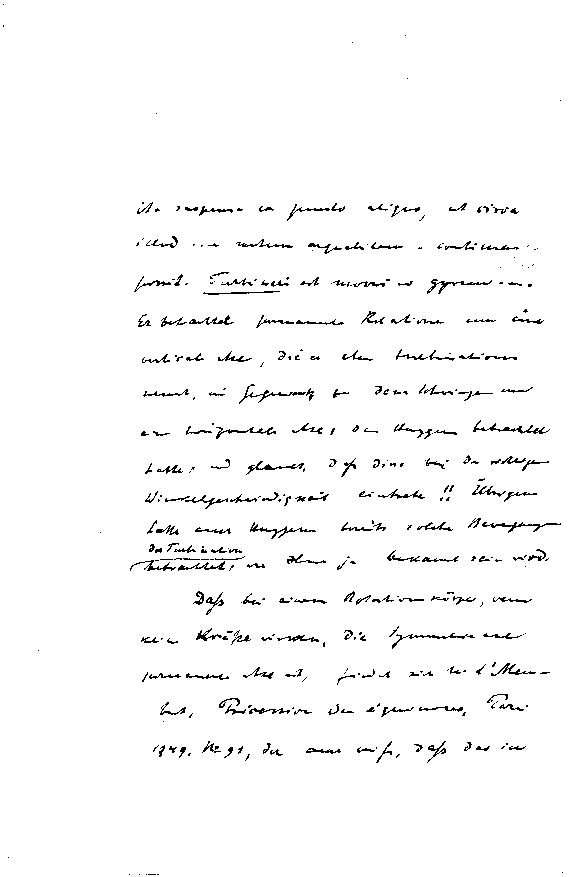 ita suspensa ex puncto aliquo, ut circa
illud motum aequabilem continuare
possit. Turbinari est moveri in gyrum
Er betrachtet permanente Rotationen um eine
vertikale Axe, die er eben turbinationes
nennt, im Gegensatz zu dem Schwingen um
eine horizontale Axe, das Huygens betrachtet
hatte, und glaubt, daß dies bei der selbigen
Winkelgeschwindigkeit eintrete!! Übrigens
hatte auch Huygens bereits solche Bewegungen
der Turbination
betrachtet, wie Ihnen ja bekannt sein wird.
Daß bei einem Rotationskörper, wenn
keine Kräfte wirken, die Symmetrieaxe
permanente Axe ist, findet sich bei d'Alem-
bert, Précession des équinoxes, Paris
1749. No 91, der auch weiß, daß das in